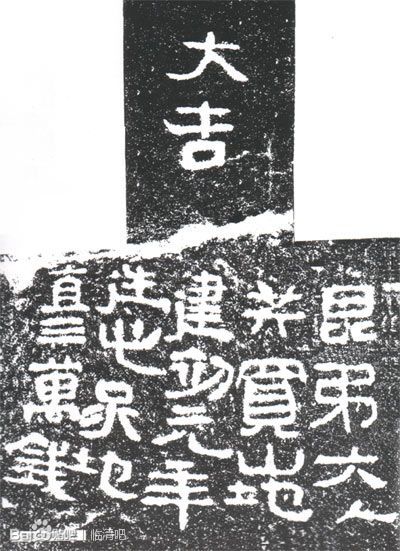 大吉
昆弟六人
共買山地
建初元年
造此冢地
直三萬錢
Bai度贴吧 | 临清吧